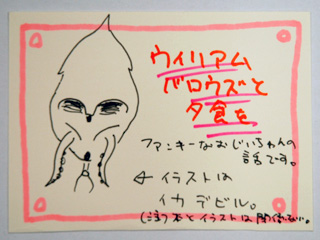 ウィリアム
バロウズと
夕食を
ファンキーなおじいちゃんの
話です。
← イラストは
イカデビル。
(注)本とイラストは関係ない。